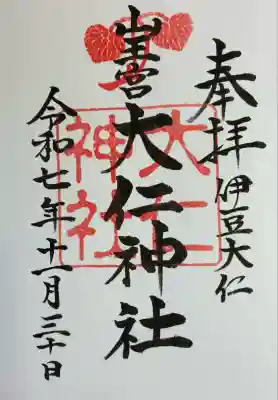 奉拝 伊豆大仁
大仁神社
大仁神社
令和七年十一月三十日